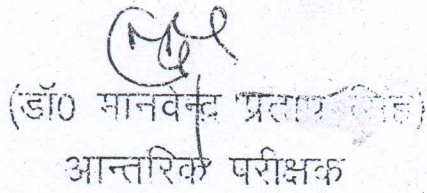 (डॉ0 मानवेन्द्र प्रताप सिंह)
आन्तरिक परीक्षक